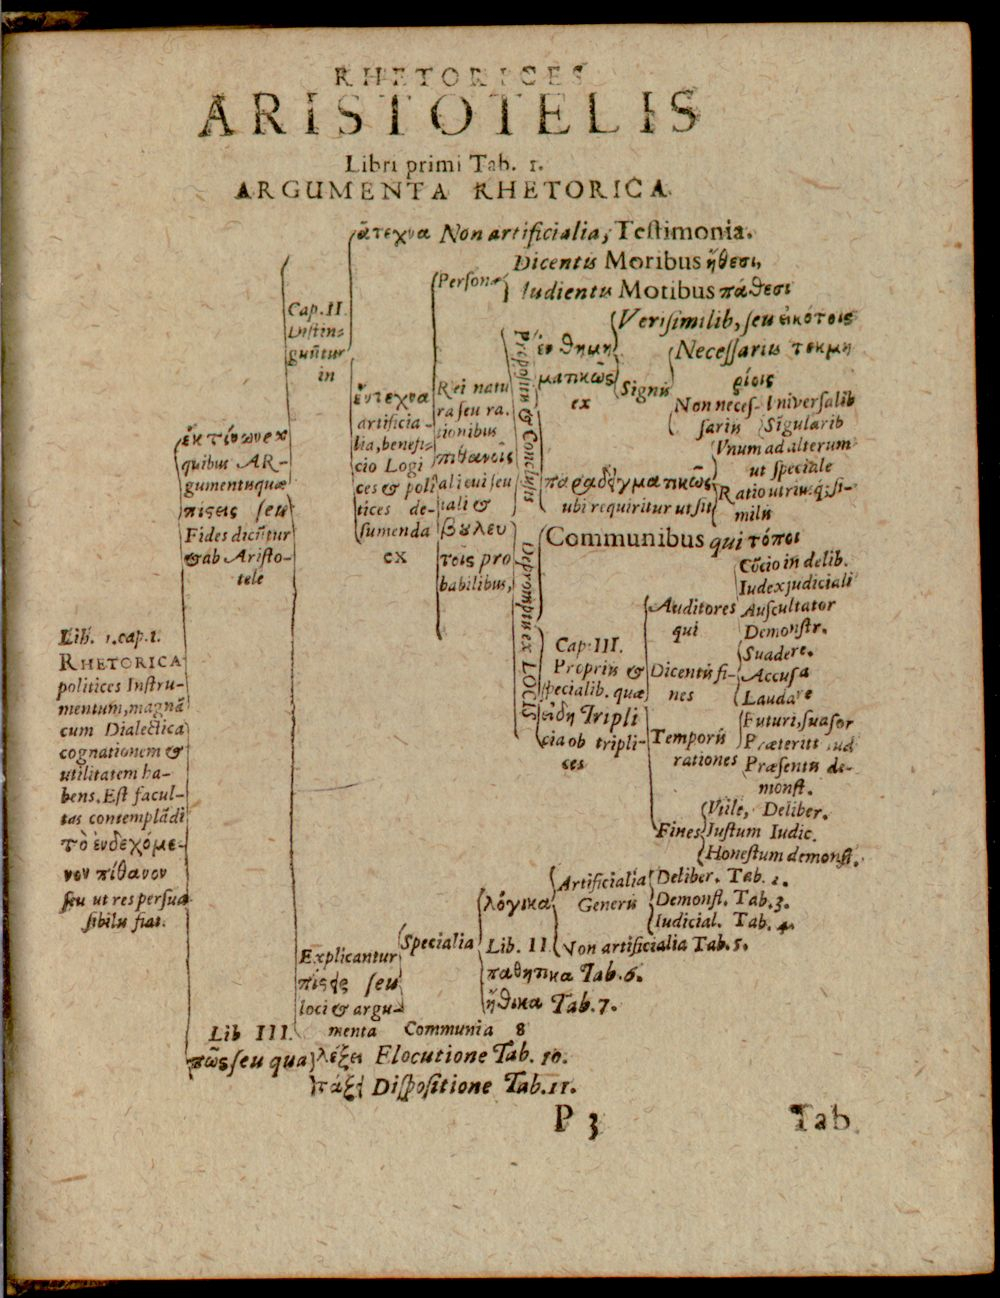 RHETORICES
ARISTOTELIS
Libri primi Tab. 1.
ARGUMENTA RHETORICA.
Lib. 1. cap. 1.
RHETORICA
politices Instru-
mentum, magnã
cum Dialectica
cognationem &
utilitatem ha-
bens. Est facul-
tas contemplãdi
τὸ ἐνδεχόμε-
νον πίθανον
seu ut res persua
sibilis fiat.
ἐκ τίνων ex
quibus AR-
gumentis quæ
πίςεις seu
Fides dicũtur
& ab Aristo-
tele
Cap. II.
Distin-
guũtur
in
ἄτεχνα Non artificialia, Testimonia.
ἔντεχνα
artificia-
lia, benefi-
cio Logi
ces & poli
tices de-
sumenda
ex
Persona
Dicentis Moribus ἤθεσι,
Audientis Motibus πάθεσι
Rei natu
ra seu ra-
tionibus
πιθανοῖς
alicui seu
tali &
βουλευ
τοῖς pro
babilibus,
Propositis & Conclusis
ἐνθημη
ματικῶς
ex
Verisimilib, seu εἰκότοις
Signis
Necessariis τεκμη
ρίοις
Non neces-
sariis
Universalib
Sigularib
παραδειγματικῶς
ubi requiritur ut sit
Vnum ad alterum
ut speciale
Ratio utriusq; si-
milis
Depromptis ex LOCIS
Communibus qui τόποι
Cap. III.
Propriis &
specialib. quæ
εἴδη Tripli
cia ob tripli-
ces
Auditores
qui
Cõcio in delib.
Iudex judiciali
Auscultator
Demonstr.
Dicentis fi-
nes
Suadere.
Accusa
Laudare
Temporis
rationes
Futuri, suasor
Præteriti iud
Præsentis de-
monst.
Fines
Vtile, Deliber.
Justum Iudic.
Honestum demonst.
Explicantur
πίςεις seu
loci & argu-
menta
Specialia
λόγικα
Lib. II
Artificialia
Generis
Deliber. Tab. 2.
Demonst. Tab. 3.
Iudicial. Tab. 4.
Non artificialia Tab. 5.
παθητικα Tab. 6.
ἤθικα Tab. 7.
Communia 8
Lib III.
πῶς seu qua
λέξει Elocutione Tab. 10.
τάξει Dispositione Tab. 11.
P 3
Tab